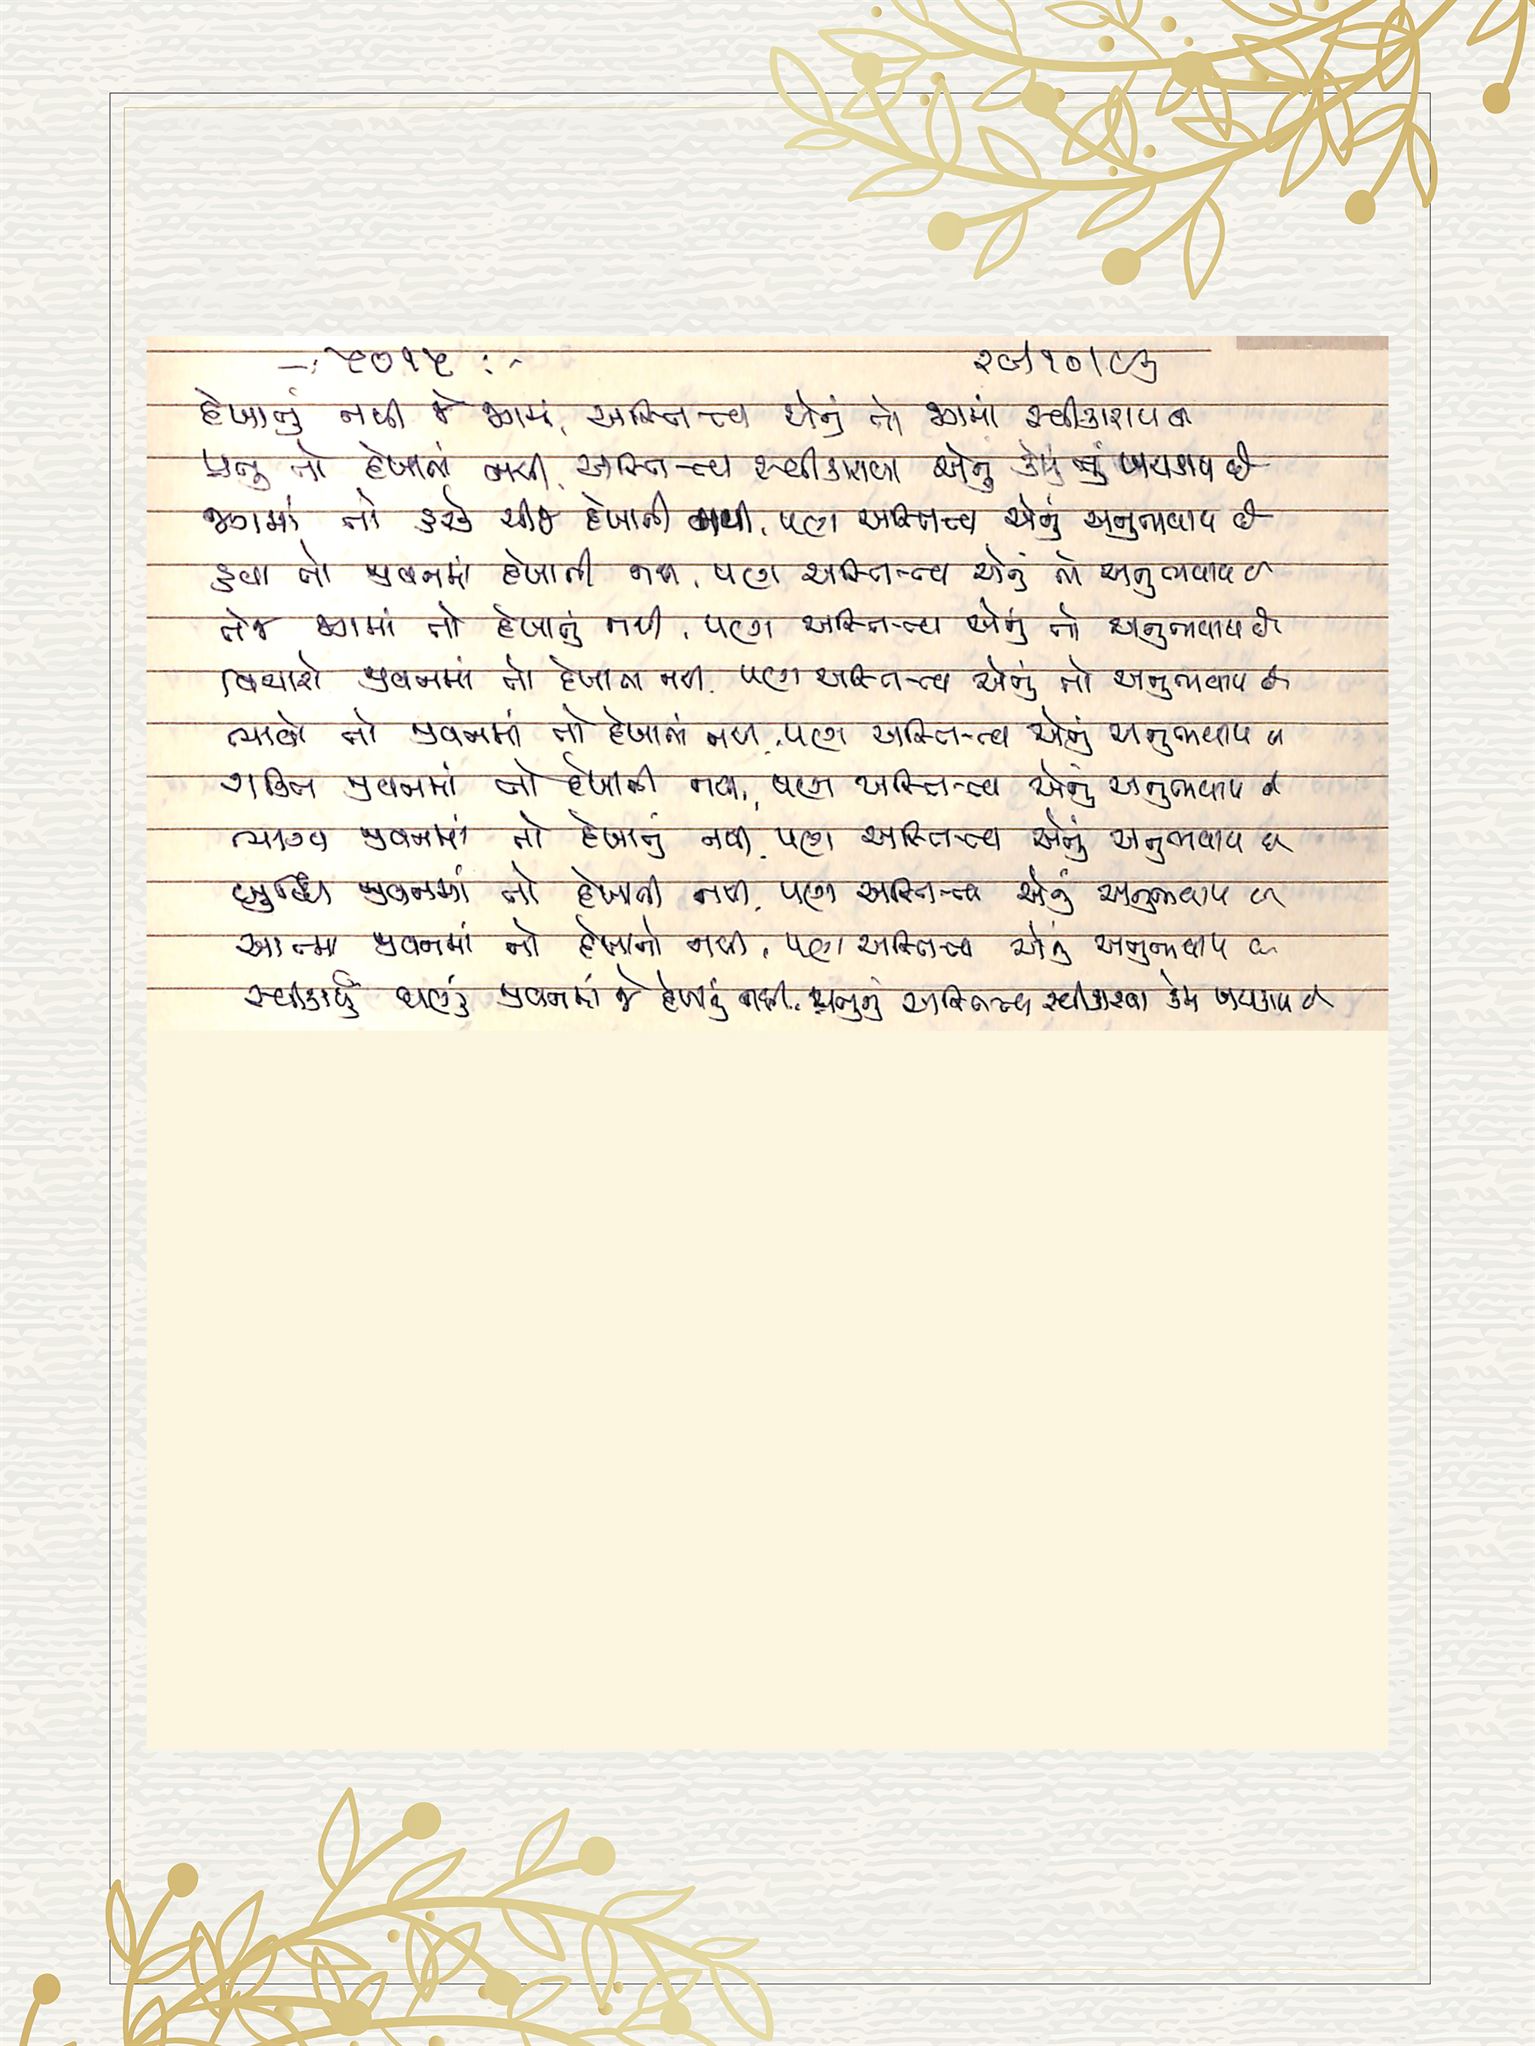 -: ૨૦૧૫ :- ૨૯/૧૦/૮૬
દેખાતું નથી જે જગમાં, અસ્તિત્વ એનું તો જગમાં સ્વીકારાય છે
પ્રભુ તો દેખાતાં નથી, અસ્તિત્વ સ્વીકારવા એનું કેમ તું ખચકાય છે
જગમાં તો કંઈ ચીજ દેખાતી નથી, પણ અસ્તિત્વ એનું અનુભવાય છે
હવા તો જીવનમાં દેખાતી નથી, પણ અસ્તિત્વ એનું તો અનુભવાય છે
તેજ જગમાં તો દેખાતું નથી, પણ અસ્તિત્વ એનું તો અનુભવાય છે
વિચારો જીવનમાં તો દેખાતા નથી, પણ અસ્તિત્વ એનું તો અનુભવાય છે
ભાવો તો જીવનમાં તો દેખાતાં નથી, પણ અસ્તિત્વ એનું અનુભવાય છે
શક્તિ જીવનમાં તો દેખાતી નથી, પણ અસ્તિત્વ એનું અનુભવાય છે
ભાગ્ય જીવનમાં તો દેખાતું નથી, પણ અસ્તિત્વ એનું અનુભવાય છે
બુદ્ધિ જીવનમાં તો દેખાતી નથી, પણ અસ્તિત્વ એનું અનુભવાય છે
આત્મા જીવનમાં તો દેખાતો નથી, પણ અસ્તિત્વ એનું અનુભવાય છે
સ્વીકાર્યું ઘણું જીવનમાં જે દેખાતું નથી, પ્રભુનું અસ્તિત્વ સ્વીકારવા કેમ ખચકાય છે